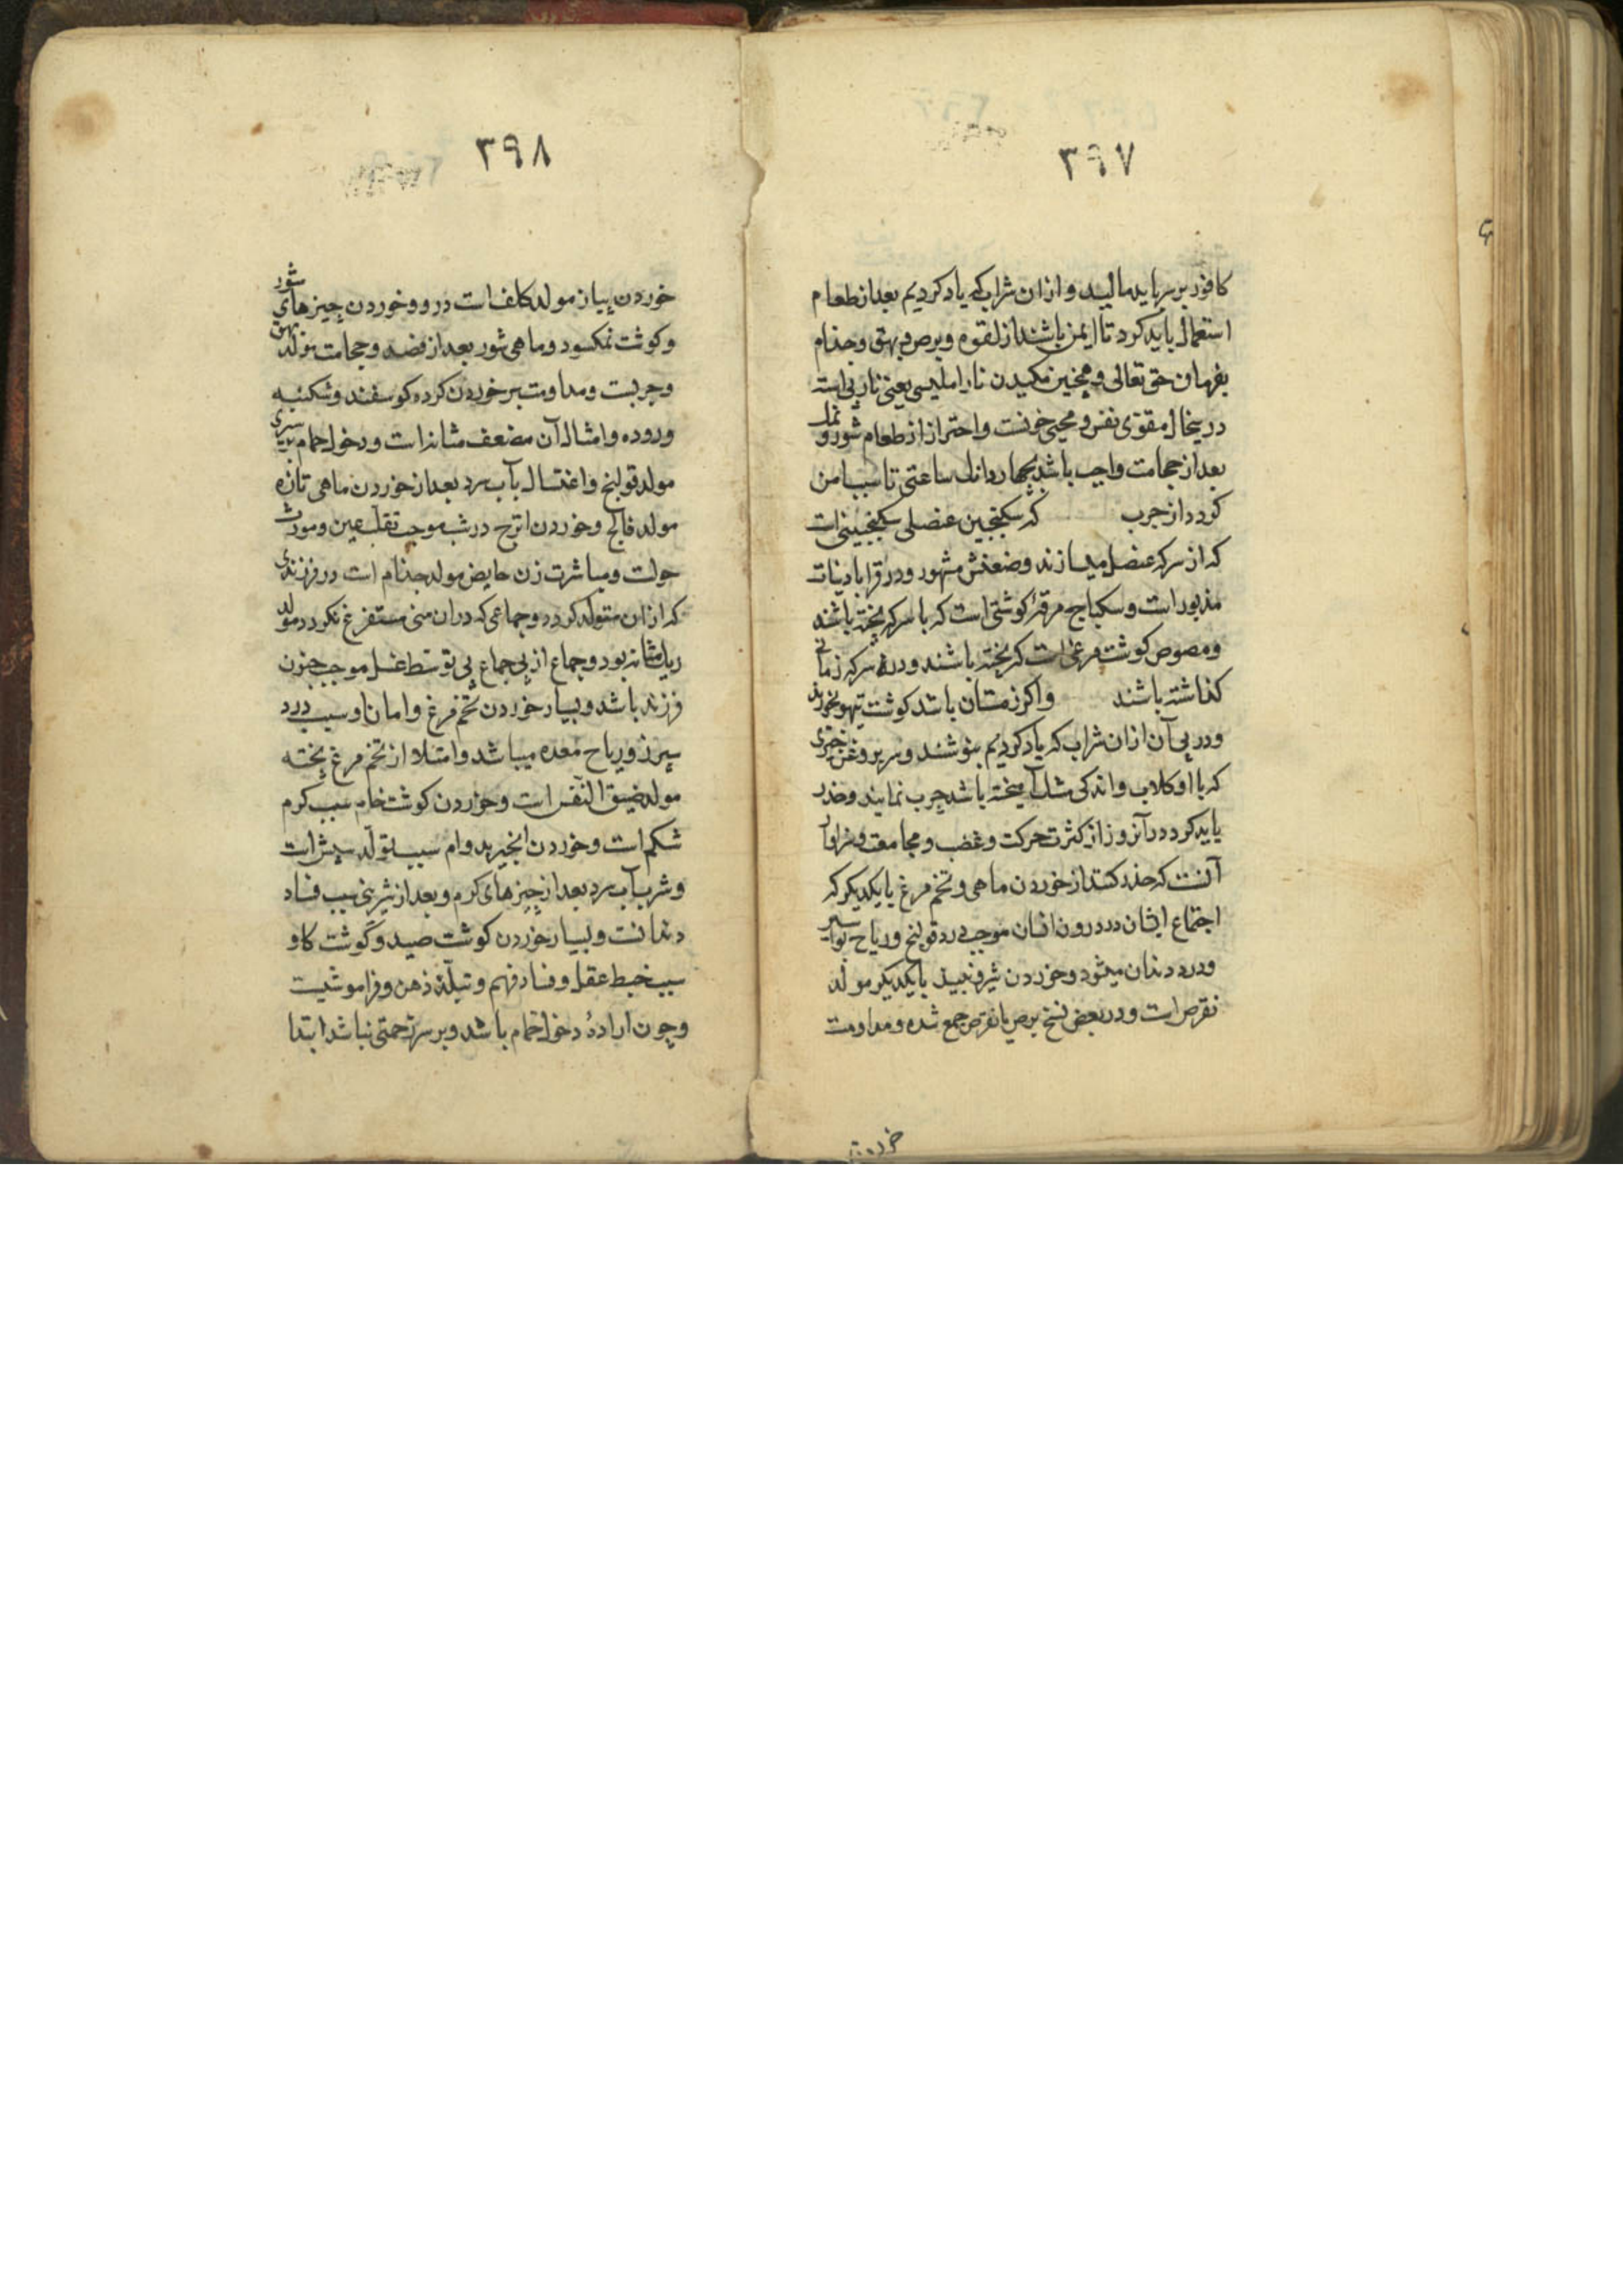 ۳۹۷
کافور بر سر باید مالید و ازان شراب که یاد کردیم بعد از طعام
استعمال باید کرد تا ایمن باشند از لقوه و برص و بهق و جذام
بفرمان حق تعالی و همچنین مکیدن نار املیسی یعنی نار بی‌استه
درینحال مقوی نفس و محیی خونست و احتراز از طعام شور و نمک
بعد از حجامت واجب باشد بچهار دانک ساعتی تا سبب امن
کردد از جرب که سکنجبین عنصلی سکنجبینی است
که از سرکه عنصل میسازند و ضعفش مشهور و در قرابادینات
مذبور است و سکباج مرقهٔ کوشتی است که با سرکه پخته باشند
و مصوص کوشت مرغی است که پخته باشند و در سرکه زمانی
کذاشته باشند و اکر زمستان باشد کوشت تیهو بخورند
و در پی آن ازان شراب که یاد کردیم بنوشند و سر بروغن خیری
که با او کلاب و اندکی مشک آمیخته باشد چرب نمایند و حذر
باید کرد در آنروز از کثرت حرکت و غضب و مجامعت و سزاوار
آنست که حذر کنند از خوردن ماهی و تخم مرغ با یکدیکر که
اجتماع ایشان در درون انسان موجب درد قولنج و ریاح بواسیر
و درد دندان میشود و خوردن شیر و نبیذ با یکدیکر مولد
نقرص است و در بعضی نسخ برص با نقرص جمع شده و مداومت
۳۹۸
خوردن پیاز مولد کلف است در رو و خوردن چیزهای شور
و کوشت نمکسود و ماهی شور بعد از فصد و حجامت مولد بهق
و جربست و مداومت بر خوردن کرده کوسفند و شکنبه
و روده و امثال آن مضعف مثانه است و دخول حمام بسیری
مولد قولنج و اغتسال بآب سرد بعد از خوردن ماهی تازه
مولد فالج و خوردن اترج در شب موجب تقلب عین و مورث
حولست و مباشرت زن حایض مولد جذام است در فرزندی
که ازان متولد کردد و جماعی که دران منی مستفرغ نکردد مولد
ریک مثانه بود و جماع از پی جماع بی توسط غسل موجب جنون
فرزند باشد و بسیار خوردن تخم مرغ و امان او سبب درد
سپرز و ریاح معده میباشد و امتلا از تخم مرغ پخته
مولد ضیق النفس است و خوردن کوشت خام سبب کرم
شکم است و خوردن انجیر بدوام سبب تولد سپش است
و شرب آب سرد بعد از چیزهای کرم و بعد از شیرینی سبب فساد
دندانست و بسیار خوردن کوشت صید و کوشت کاو
سبب خبط عقل و فساد فهم و تبلد ذهن و فراموشیست
و چون ارادهٔ دخول حمام باشد و بر سر زحمتی نباشد ابتدا